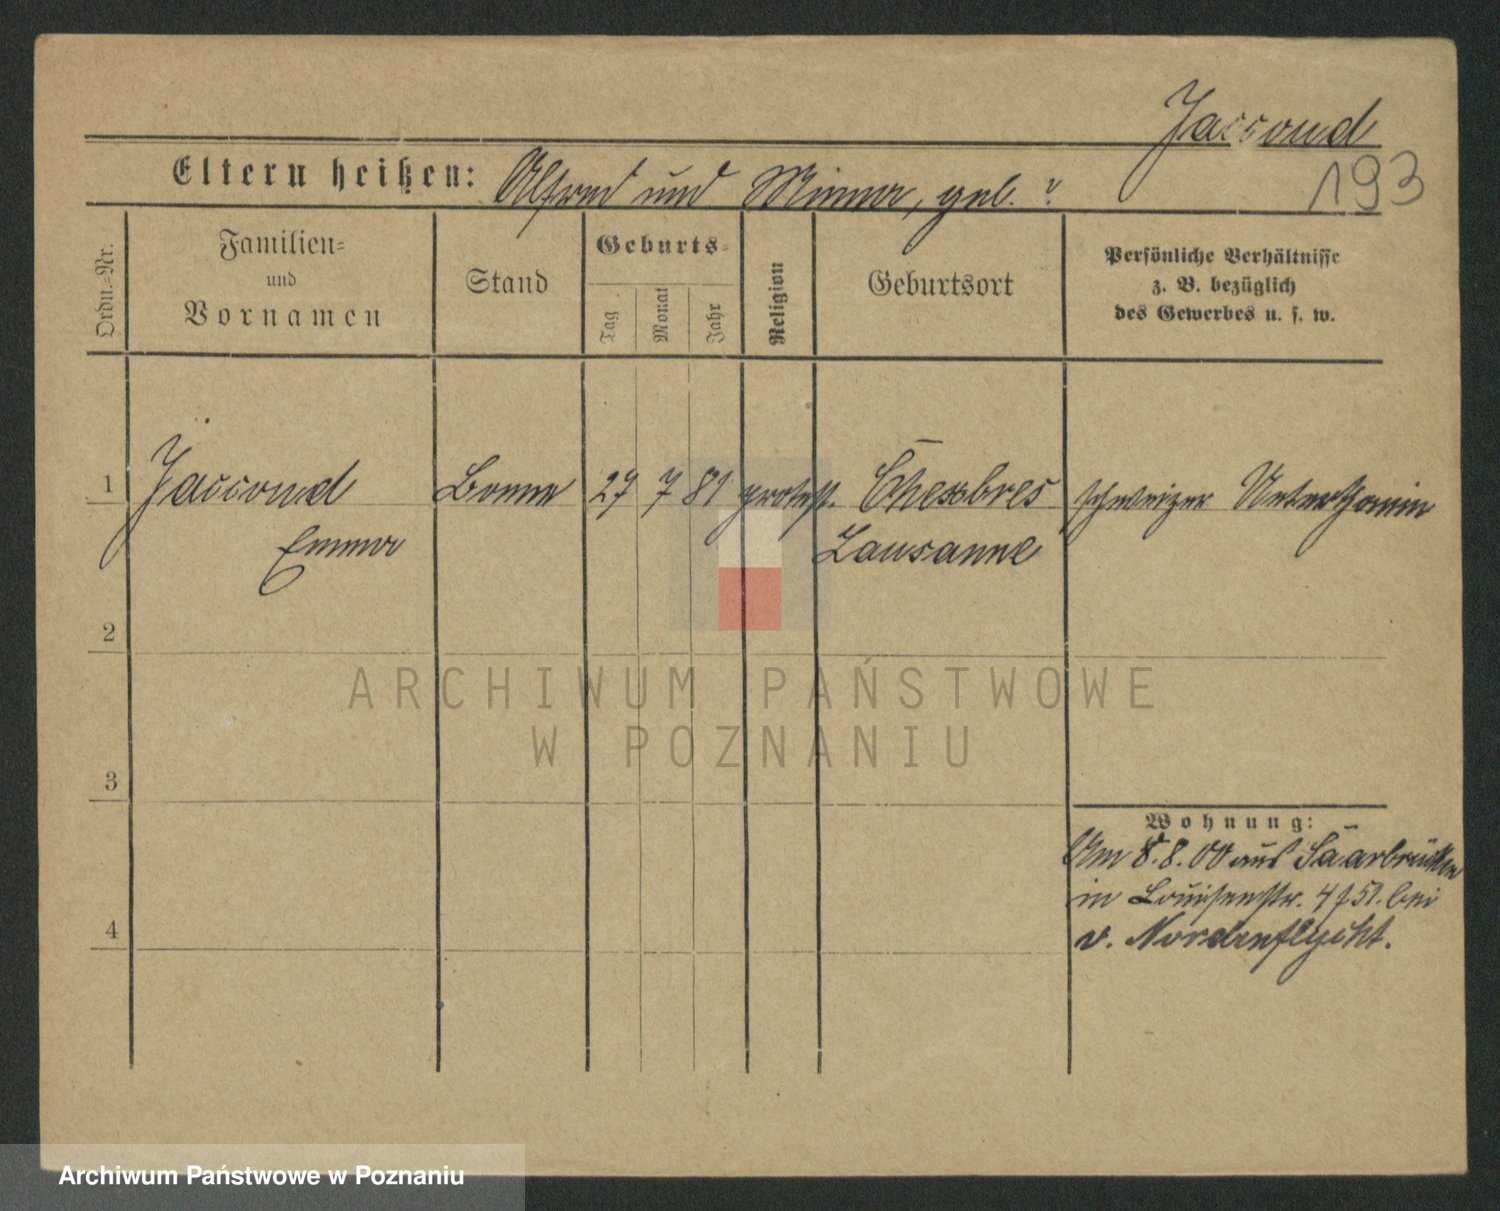 Jaccoud
Eltern heißen: Alfred und Minna, geb. ?
193
Ordn.=Nr.
Familien=
und
Vornamen
Stand
Geburts=
Tag
Monat
Jahr
Religion
Geburtsort
Persönliche Verhältnisse
z. B. bezüglich
des Gewerbes u. s. w.
1 Jaccoud Bonne 27 7 81 protest. Chexbres schweizer Unterthanin
Emma Lausanne
2
3
4
Wohnung:
Am 8.8.00 aus Saarbrücken
in Louisenstr. 4 bei
v. Nordenflycht.
ARCHIWUM PAŃSTWOWE
W POZNANIU
Archiwum Państwowe w Poznaniu